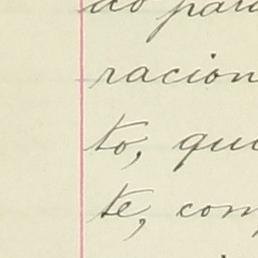 do para
racion
to, qui
te, com